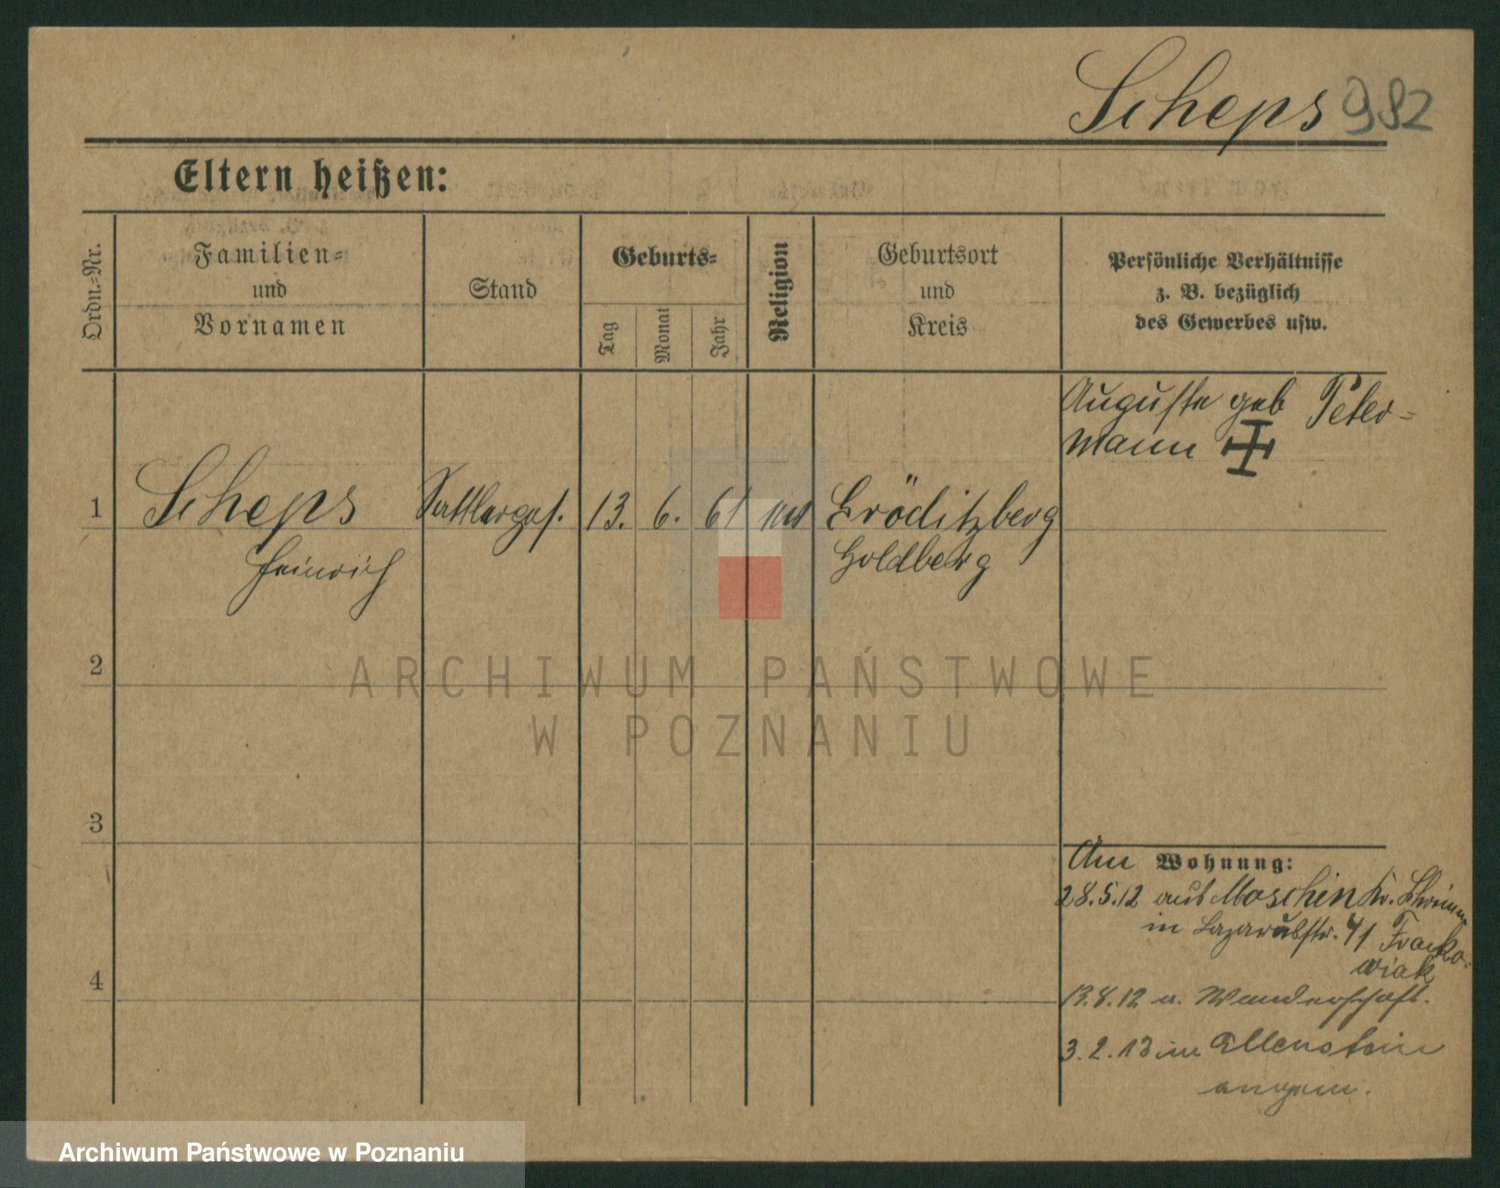 Scheps 982
Eltern heißen:
Ordn.-Nr.
Familien-
und
Vornamen
Stand
Geburts-
Tag
Monat
Jahr
Religion
Geburtsort
und
Kreis
Persönliche Verhältnisse
z. B. bezüglich
des Gewerbes usw.
Auguste geb Peter-
mann
1 Scheps Sattlerges. 13. 6. 61 Gröditzberg
Heinrich Goldberg
2
3
4
Am Wohnung:
28.5.12 aus Moschin Kr. Schrimm
in Lazarusstr. 41 Fracko-
wiak
13.8.12 a. Wanderschaft.
3.2.13 in Allenstein
angem.
ARCHIWUM PAŃSTWOWE
W POZNANIU
Archiwum Państwowe w Poznaniu